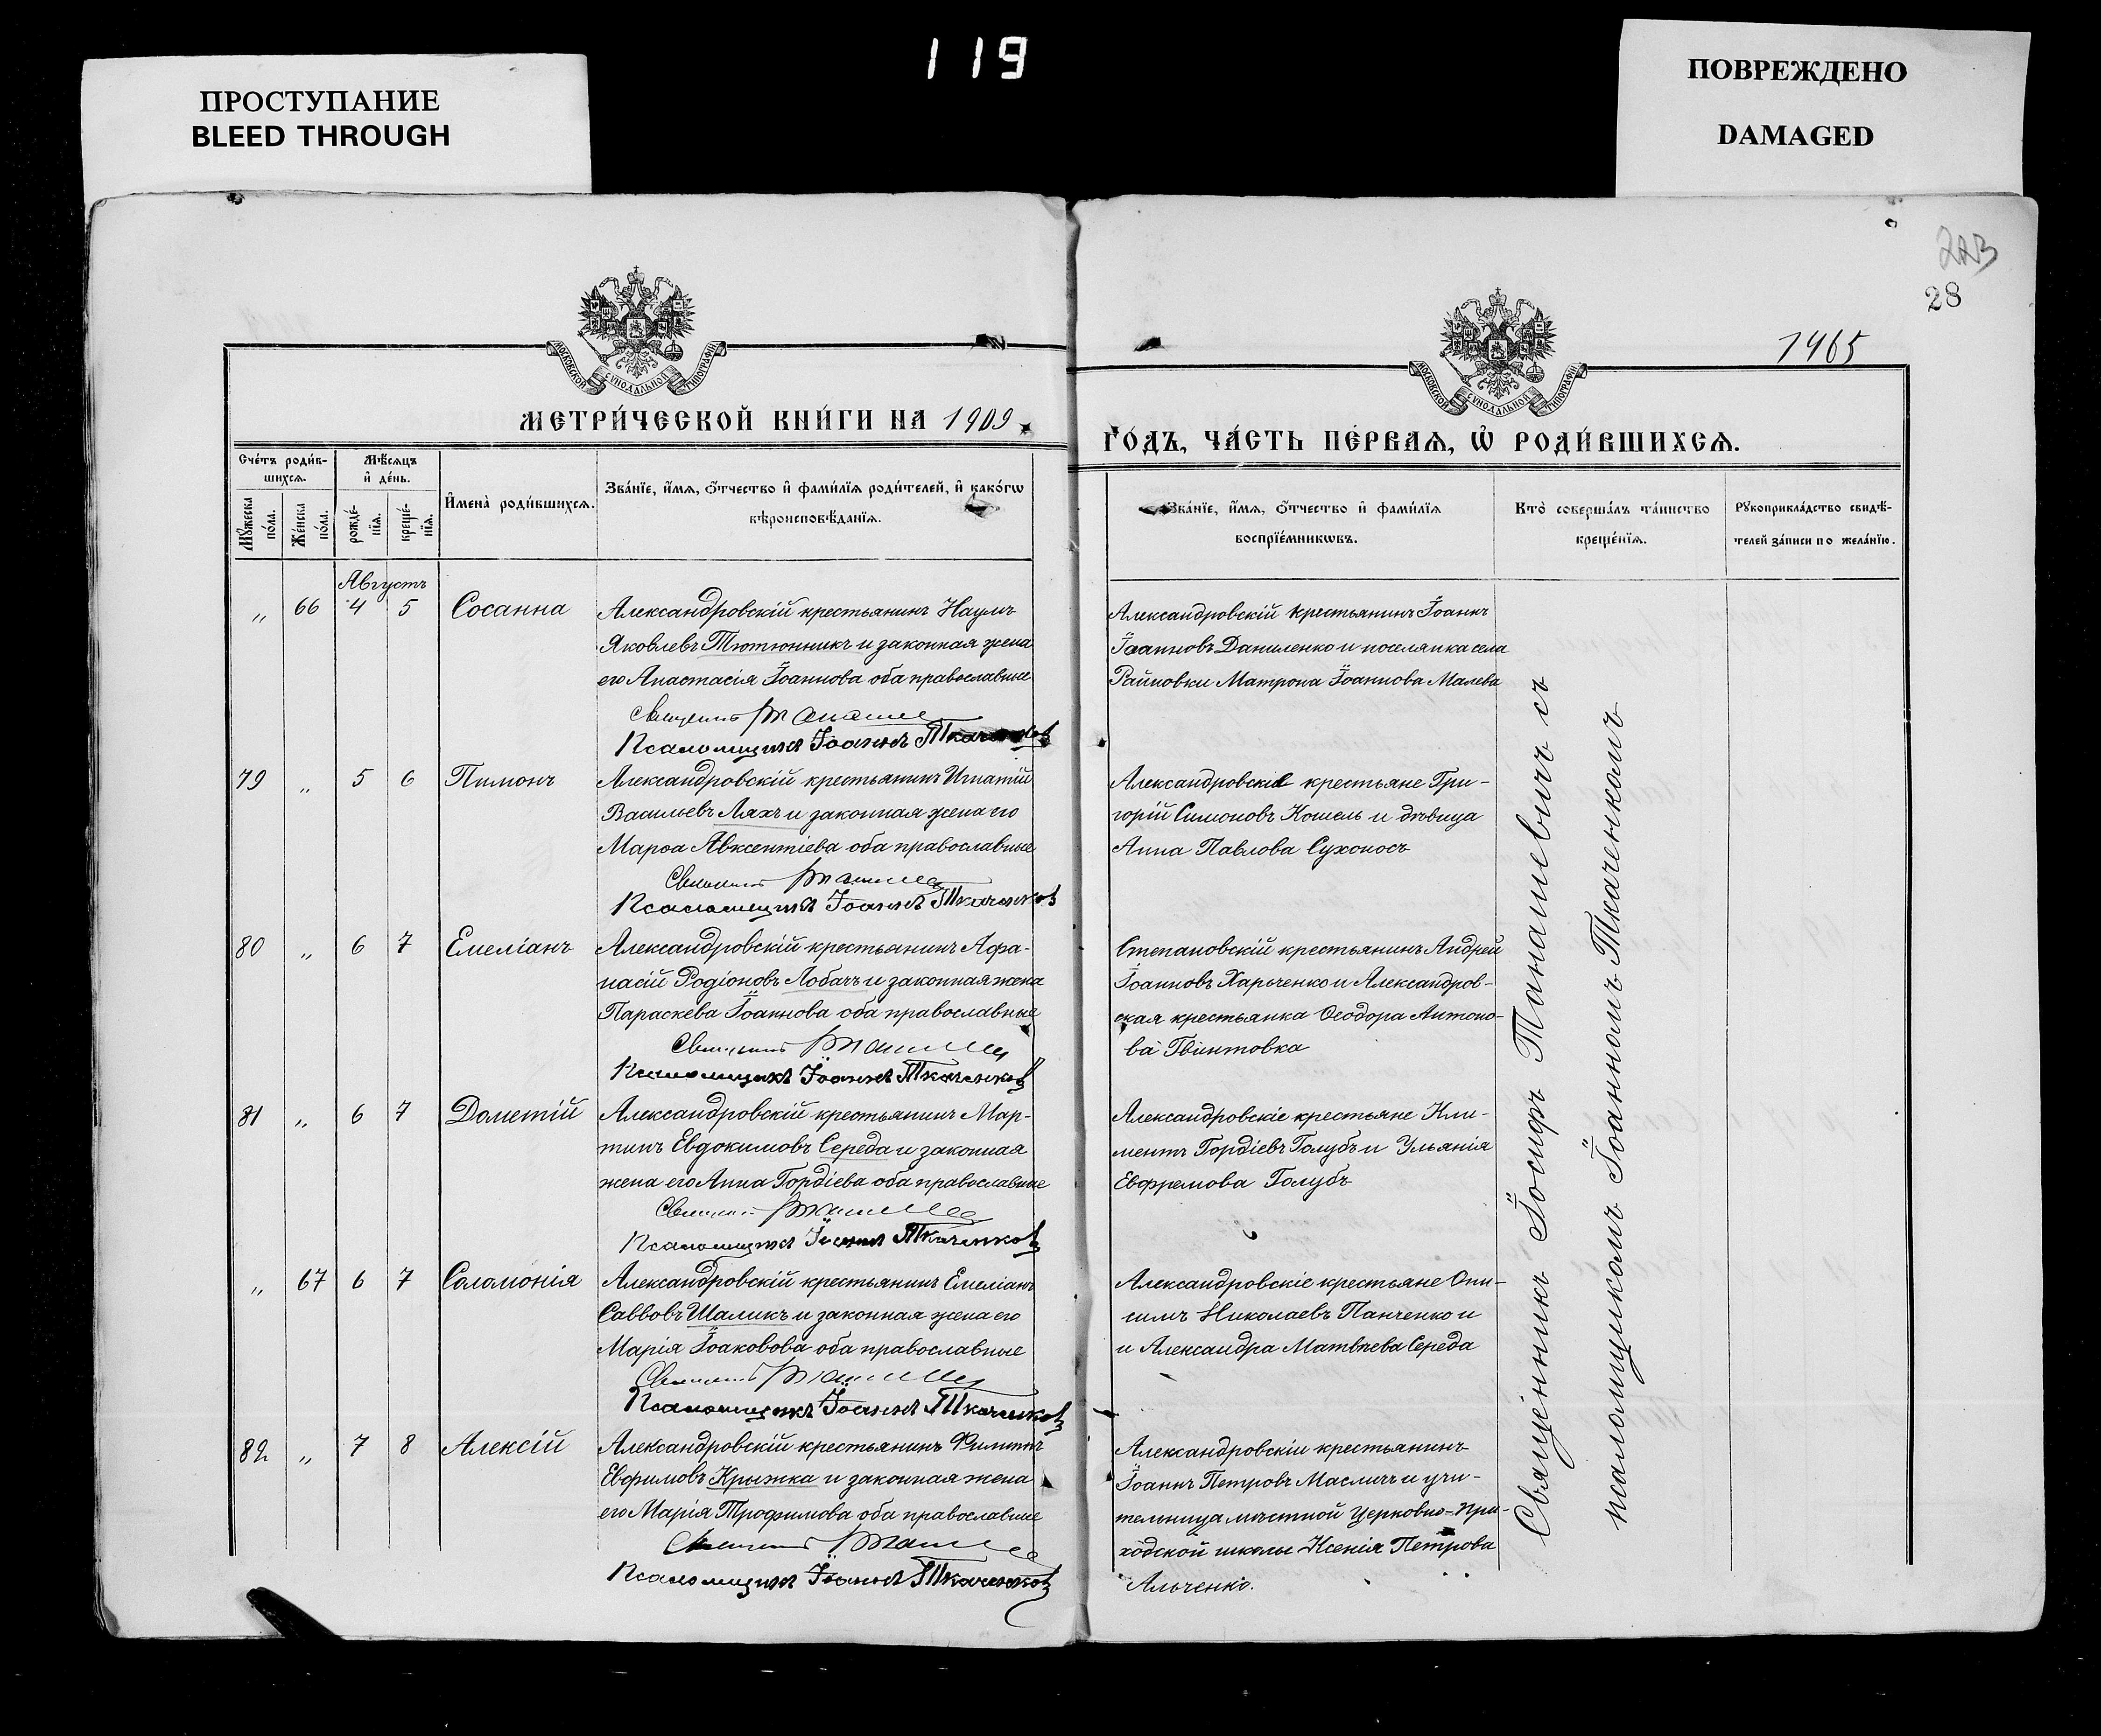 119
ПРОСТУПАНИЕ
BLEED THROUGH
ПОВРЕЖДЕНО
DAMAGED
28
1465
МОСКОВСКОЙ СѴНОДАЛЬНОЙ ТИПОГРАФІИ
МОСКОВСКОЙ СѴНОДАЛЬНОЙ ТИПОГРАФІИ
МЕТРИ́ЧЕСКОЙ КНИ́ГИ НА 1909
ГО́ДЪ, ЧА́СТЬ ПЕ́РВАѦ, Ѡ҆ РОДИ́ВШИХСѦ.
Сче́тъ роди́в-
шихсѧ.
Мꙋжеска по́ла.
Же́нска по́ла.
Мѣ́сѧцъ
и҆ де́нь.
рожде́-
нїѧ.
креще́-
нїѧ.
И҆мена̀ роди́вшихсѧ.
Зва́нїе, и҆́мѧ, ѻ҆́тчество и҆ фами́лїѧ роди́телей, и҆ како́гѡ
вѣроисповѣ́данїѧ.
Зва́нїе, и҆́мѧ, ѻ҆́тчество и҆ фами́лїѧ
воспрїе́мникѡвъ.
Кто̀ соверша́лъ та́инство
креще́нїѧ.
Рꙋкоприкла́дство свидѣ́-
телей за́писи по жела́нїю.
Августъ
„ 66 4 5 Сосанна
Александровскій крестьянинъ Наумъ
Яковлевъ Тютюнникъ и законная жена
его Анастасія Іоаннова оба православные
Псаломщикъ Іоаннъ Ткаченковъ
Александровскій крестьянинъ Іоаннъ
Іоанновъ Даниленко и поселянка села
Райновки Матрона Іоаннова Малева
79 „ 5 6 Пимонъ
Александровскій крестьянинъ Игнатій
Васильевъ Ляхъ и законная жена его
Марѳа Авксентіева оба православные
Псаломщикъ Іоаннъ Ткаченковъ
Александровскіе крестьяне Гри-
горій Симоновъ Кошель и дѣвица
Анна Павлова Сухоносъ
80 „ 6 7 Емеліанъ
Александровскій крестьянинъ Афа-
насій Родіоновъ Лобачъ и законная жена
Параскева Іоаннова оба православные
Псаломщикъ Іоаннъ Ткаченковъ
Степановскій крестьянинъ Андрей
Іоанновъ Харченко и Александров-
ская крестьянка Ѳеодора Антоно-
ва Гвинтовка
81 „ 6 7 Дометій
Александровскій крестьянинъ Мар-
тинъ Евдокимовъ Середа и законная
жена его Анна Гордіева оба православные
Псаломщикъ Іоаннъ Ткаченковъ
Александровскіе крестьяне Кли-
ментъ Гордіевъ Голубъ и Ульянія
Евфремова Голубъ
„ 67 6 7 Соломонія
Александровскій крестьянинъ Емеліанъ
Саввовъ Шаликъ и законная жена его
Марія Іоаковова оба православные
Псаломщикъ Іоаннъ Ткаченковъ
Александровскіе крестьяне Они-
симъ Николаевъ Панченко и
и Александра Матвѣева Середа
82 „ 7 8 Алексій
Александровскій крестьянинъ Филиппъ
Евфимовъ Крыжка и законная жена
его Марія Трофимова оба православные
Псаломщикъ Іоаннъ Ткаченковъ
Александровскій крестьянинъ
Іоаннъ Петровъ Масличъ и учи-
тельница мѣстной Церковно-При-
ходской школы Ксенія Петрова
Альченко.
Священникъ Іосифъ Танашевичъ съ
псаломщикомъ Іоанномъ Ткаченкомъ